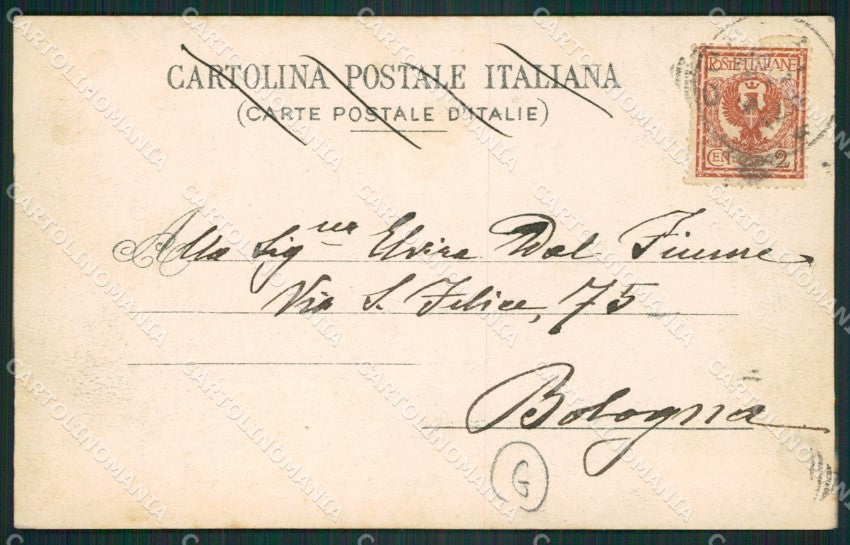 CARTOLINA POSTALE ITALIANA
(CARTE POSTALE D'ITALIE)
POSTE ITALIANE
CEN 2
Alla Sig.na Elvira Dal Fiume
Via S. Felice, 75
Bologna
G
CARTOLINOMANIA